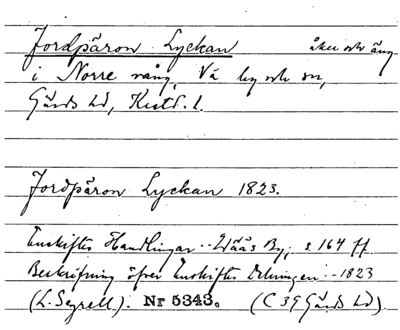 Jordpäron Lyckan åker och äng
i Norre vång, Vä by och sn,
Gärds hd, Krist. l.
Jordpäron Lyckan 1823.
Enskiftes Handlingar Wääs By; s. 164 ff
Beskrifning öfver Enskiftes Delningen - 1823
(L. Seyrell). Nr 5343. (C 39 Gärds hd).